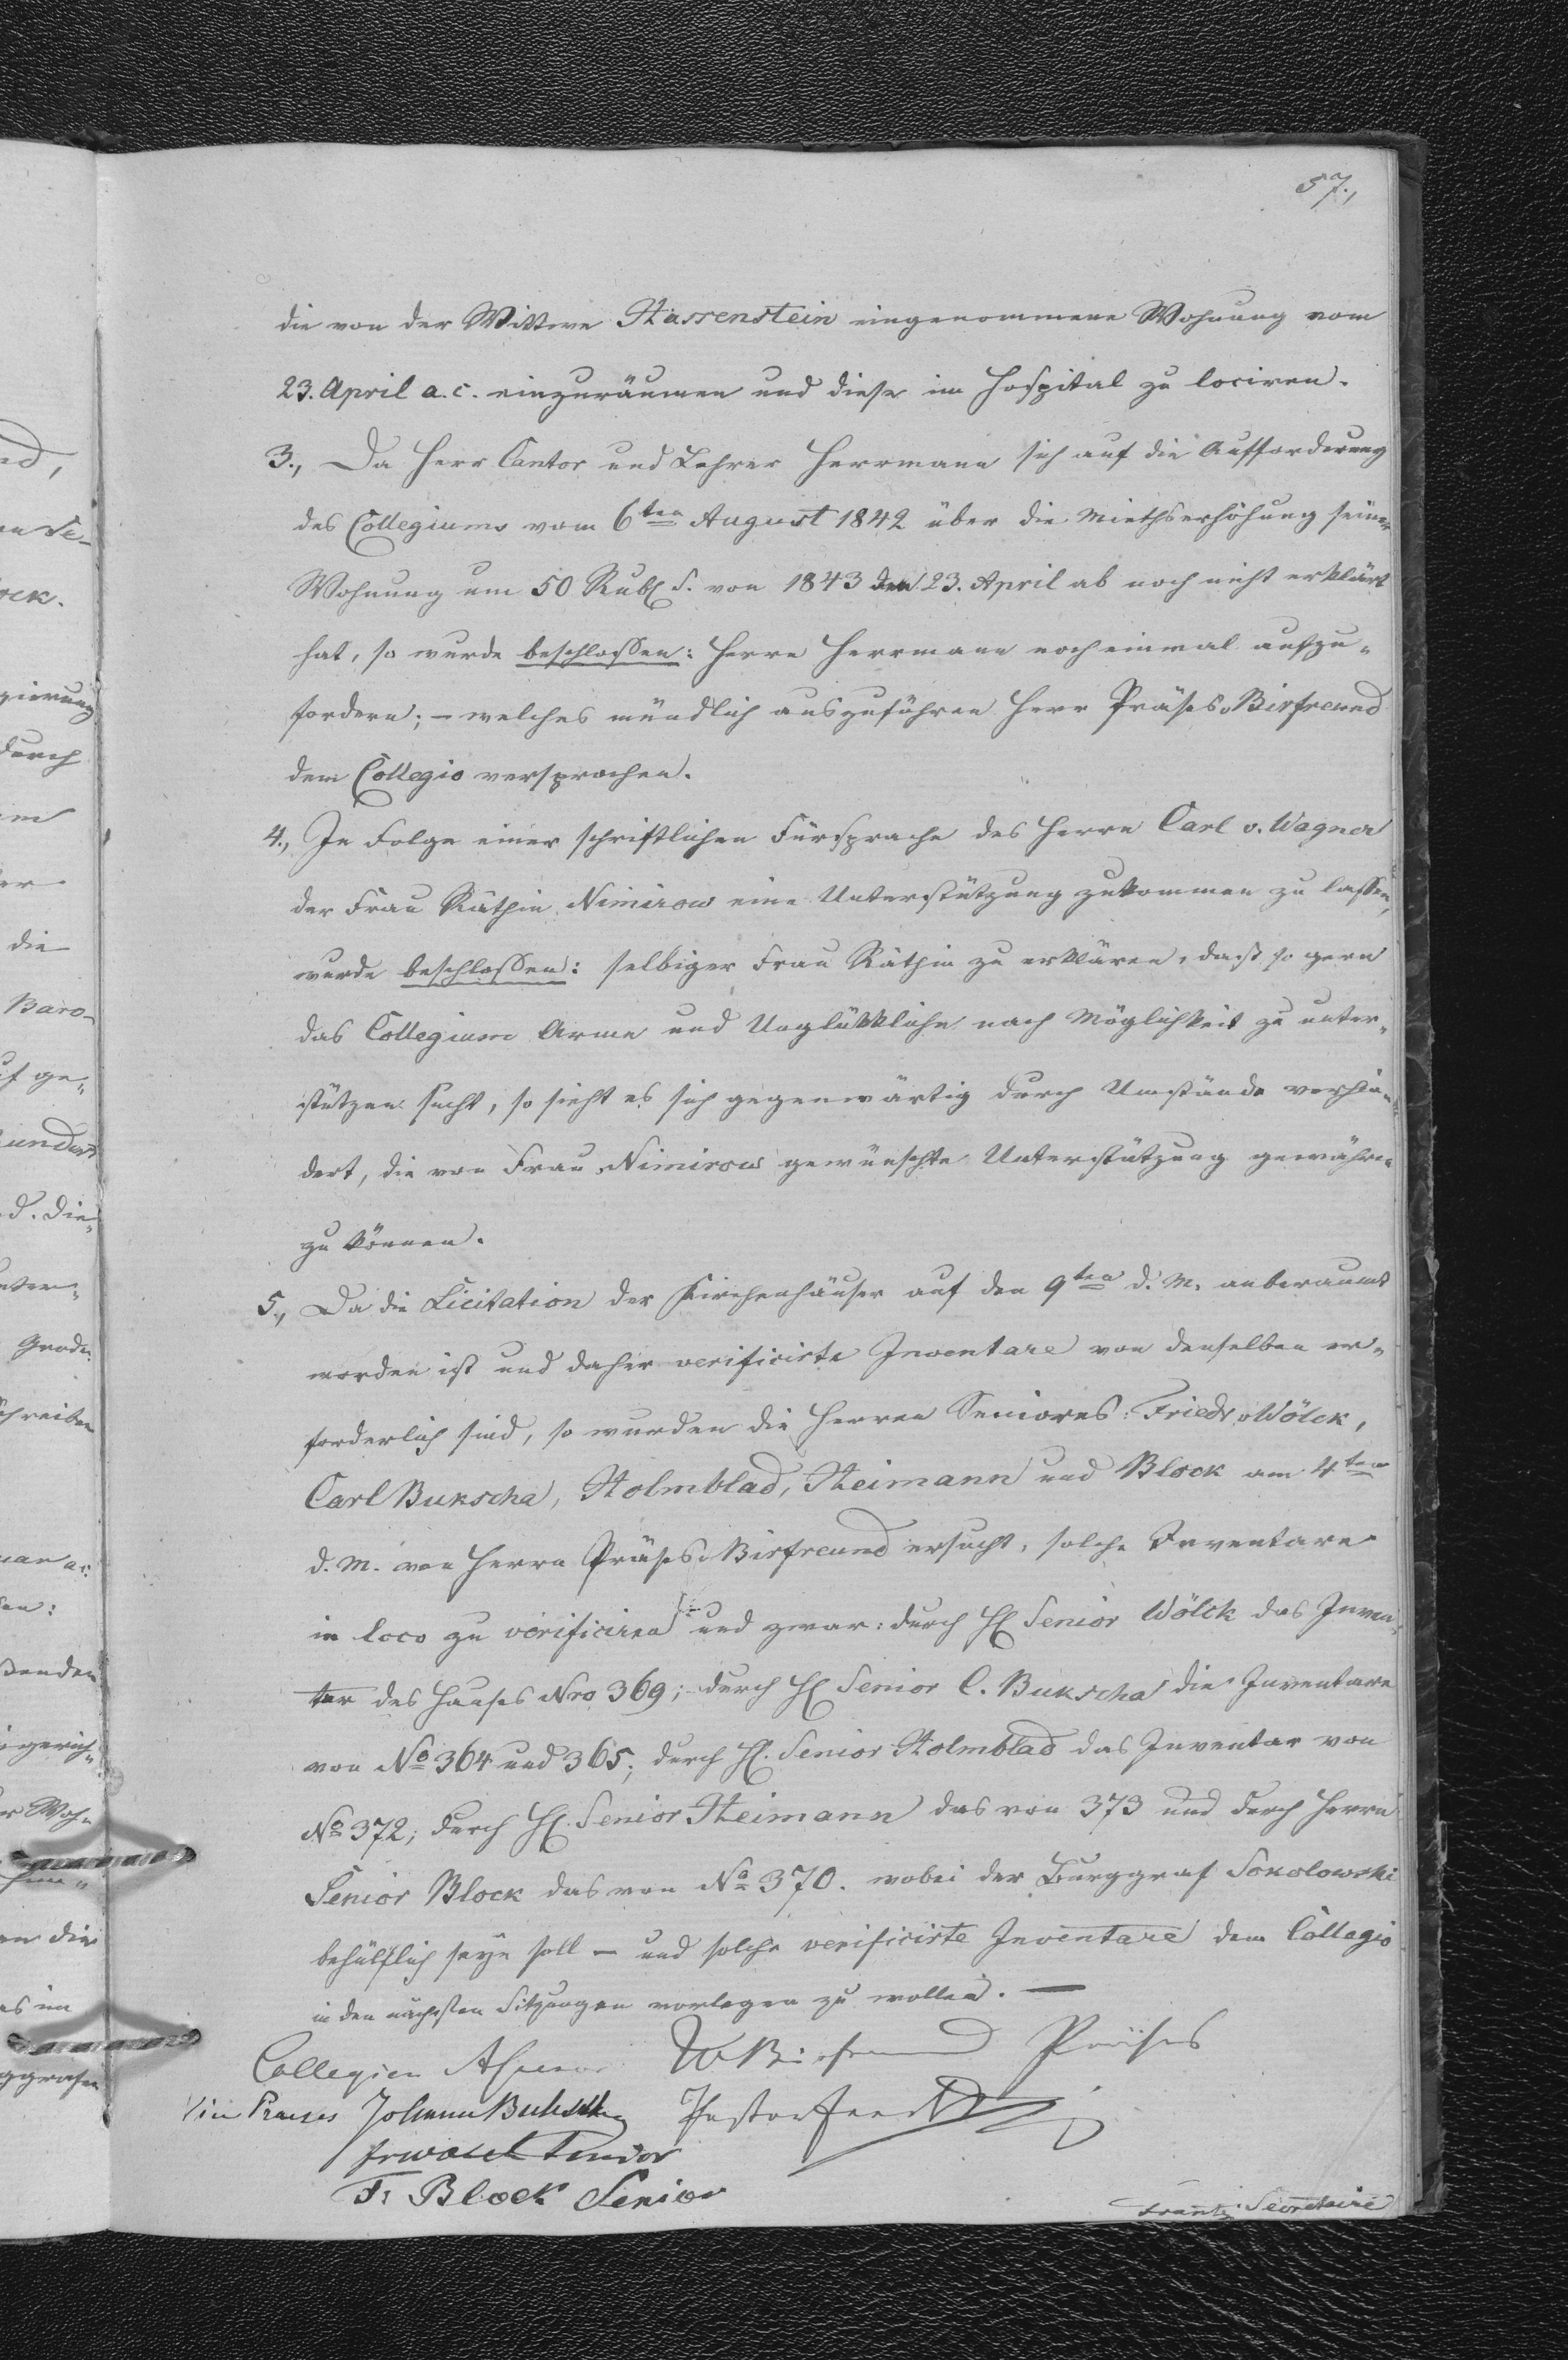 57.,
die von der Wittwe Hassenstein eingenommene Wohnung vom
23. April a. c. einzuräumen und diese im Hospital zu lociren.
3., Da Herr Cantor und Lehrer Herrmann sich auf die Aufforderung
des Collegiums vom 6ten August 1842 über die Miethserhöhung seiner
Wohnung um 50 Rub. S. von 1843 den 23. April ab noch nicht erklärt
hat, so wurde beschlossen: Herrn Herrmann noch einmal aufzu-
fordern; – welches mündlich auszuführen Herr Präses Birfreund
dem Collegio versprochen.
4., In Folge einer schriftlichen Fürsprache des Herrn Carl v. Wagner
der Frau Räthin Nimirow eine Unterstützung zukommen zu lassen,
wurde beschlossen: selbiger Frau Räthin zu erklären, dass so gern
das Collegium Arme und Unglükkliche nach Möglichkeit zu unter-
stützen sucht, so sieht es sich gegenwärtig durch Umstände verhin-
dert, die von Frau Nimirow gewünschte Unterstützung gewähren
zu können.
5., Da die Licitation der Kirchenhäuser auf den 9ten d. M. anberaumt
worden ist und daher verificirte Inventare von denselben er-
forderlich sind, so wurden die Herren Seniores: Friedr. Wölck,
Carl Bukscha, Holmblad, Heimann und Block am 4ten
d. M. von Herrn Präses Birfreund ersucht, solche Inventare
in loco zu verificiren und zwar: durch H. Senior Wölck das Inven-
tar des Hauses Nro 369; durch H. Senior C. Bukscha die Inventare
von No 364 und 365; durch H. Senior Holmblad das Inventar von
No 372; durch H. Senior Heimann das von 373 und durch Herrn
Senior Block das von No 370. wobei der Burggraf Sokolowski
behülflich seyn soll – und solche verificirte Inventare dem Collegio
in den nächsten Sitzungen vorlegen zu wollen. –
Collegien Assessor W Birfreund Präses
Vice Praeses Johann Bukscha Pastor
Fr Wölck Senior
Fr Block Senior
Frantz Secretaire